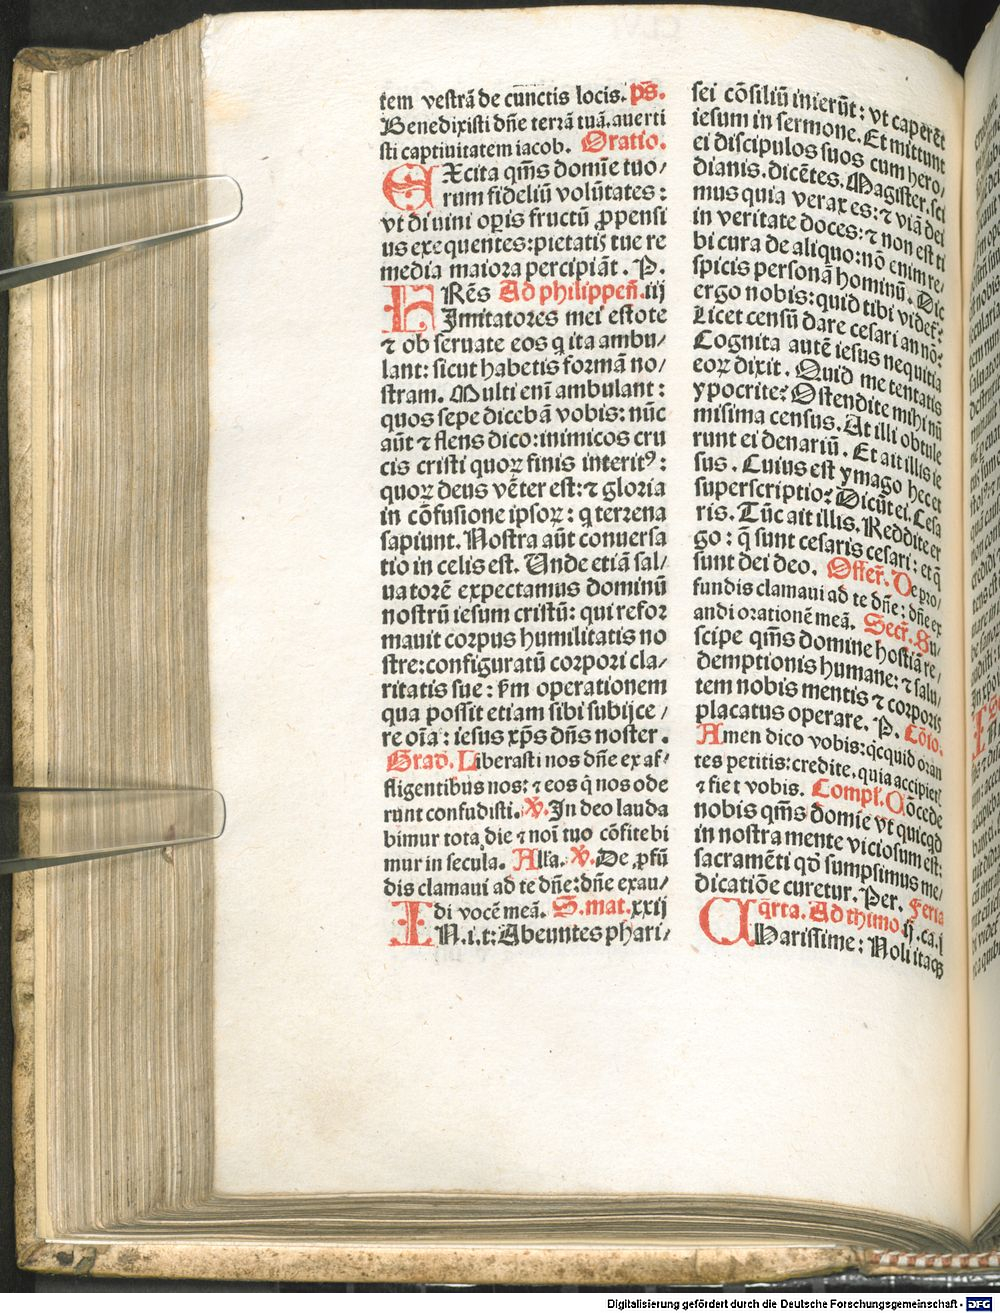 tem vestrā de cunctis locis. ps̄.
Benedixisti dn̄e terrā tuā. auerti
sti captiuitatem iacob. Oratio.
EXcita qm̄s domīe tuo/
rum fideliū volūtates:
vt diuini op̲is fructū ꝓpensi
us exequentes: pietatꝭ tue re
media maiora percipiāt. P.
FRēs Ad philippeñ. iij
Jmitatores mei estote
⁊ obseruate eos q ita ambu/
lant: sicut habetis formā no/
stram. Multi enī ambulant:
quos sepe dicebā vobis: nūc
aūt ⁊ flens dico: inimicos cru
cis cristi quoꝝ finis interitꝰ:
quoꝝ deus vēter est: ⁊ gloria
in cōfusione ipsoꝝ: q terrena
sapiunt. Nostra aūt conuersa
tio in celis est. Unde etiā sal/
uatorē expectamus dominū
nostrū iesum cristū: qui refor
mauit corpus humilitatis no
stre: configuratū corpori cla/
ritatis sue: ẜm operationem
qua possit etiam sibi subijce/
re oīa: iesus xp̄s dn̄s noster.
Grad. Liberasti nos dn̄e ex af/
fligentibus nos: ⁊ eos q̄ nos ode
runt confudisti. V. In deo lauda
bimur tota die ⁊ noī tuo cōfitebi
mur in secula. Alla. V. De ꝓfū
dis clamaui ad te dn̄e: dn̄e exau/
di vocē meā. S. mat. xxij
IN. i. t: Abeuntes phari/
sei cōsiliū inierūt: vt caperēt
iesum in sermone. Et mittunt
ei discipulos suos cum hero/
dianis. dicētes. Magister. sci
mus quia verax es: ⁊ viā dei
in veritate doces: ⁊ non est ti
bi cura de aliquo: nō enim re/
spicis personā hominū. Dic
ergo nobis: quid tibi videt̄:
Licet censū dare cesari an nō:
Cognita autē iesus nequitia
eoꝝ dixit. Quid me tentatis
ypocrite: Ostendite mihi nu
misima census. At illi obtule
runt ei denariū. Et ait illis ie
sus. Cuius est ymago hec et
superscriptio: Dicūt ei. Cesa
ris. Tūc ait illis. Reddite er
go: q̄ sunt cesaris cesari: et q̄
sunt dei deo. Offer̄. De pro/
fundis clamaui ad te dn̄e: dn̄e ex
audi orationē meā. Secr̄. Su/
scipe qm̄s domine hostiā re/
demptionis humane: ⁊ salu/
tem nobis mentis ⁊ corporis
placatus operare. P. Cōio.
Amen dico vobis: qc̄quid oran
tes petitis: credite, quia accipietꝭ
⁊ fiet vobis. Compl. Cōcede
nobis qm̄s domīe vt quicq̄d
in nostra mente viciosum est:
sacramēti qd̄ sumpsimus me/
dicatiōe curetur. Per. Feria
q̄rta. Ad thimo ij. ca. i
CHarissime: Noli itaqꝫ
Digitalisierung gefördert durch die Deutsche Forschungsgemeinschaft - DFG